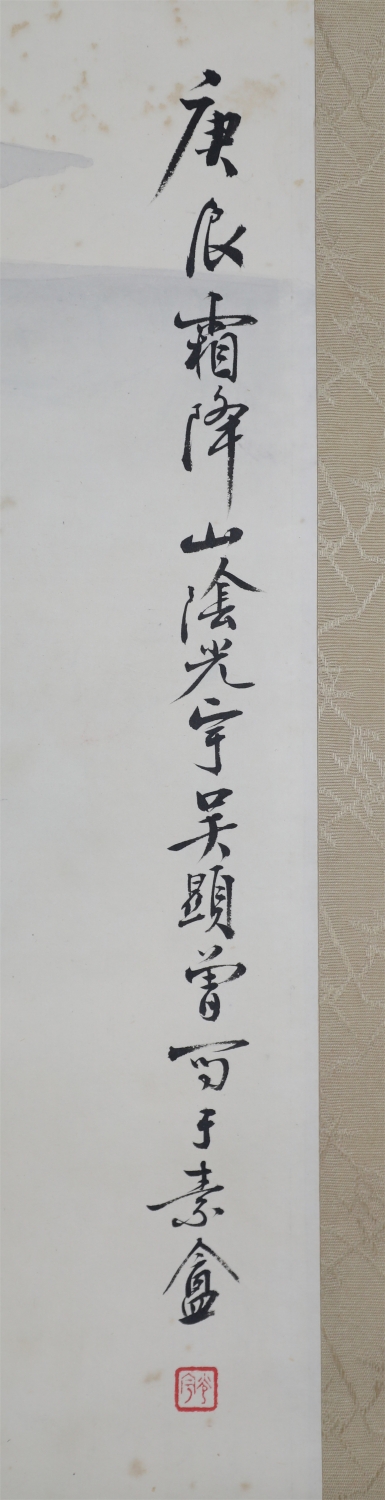 庚辰霜降山陰光宇吳顯曾写于素盦